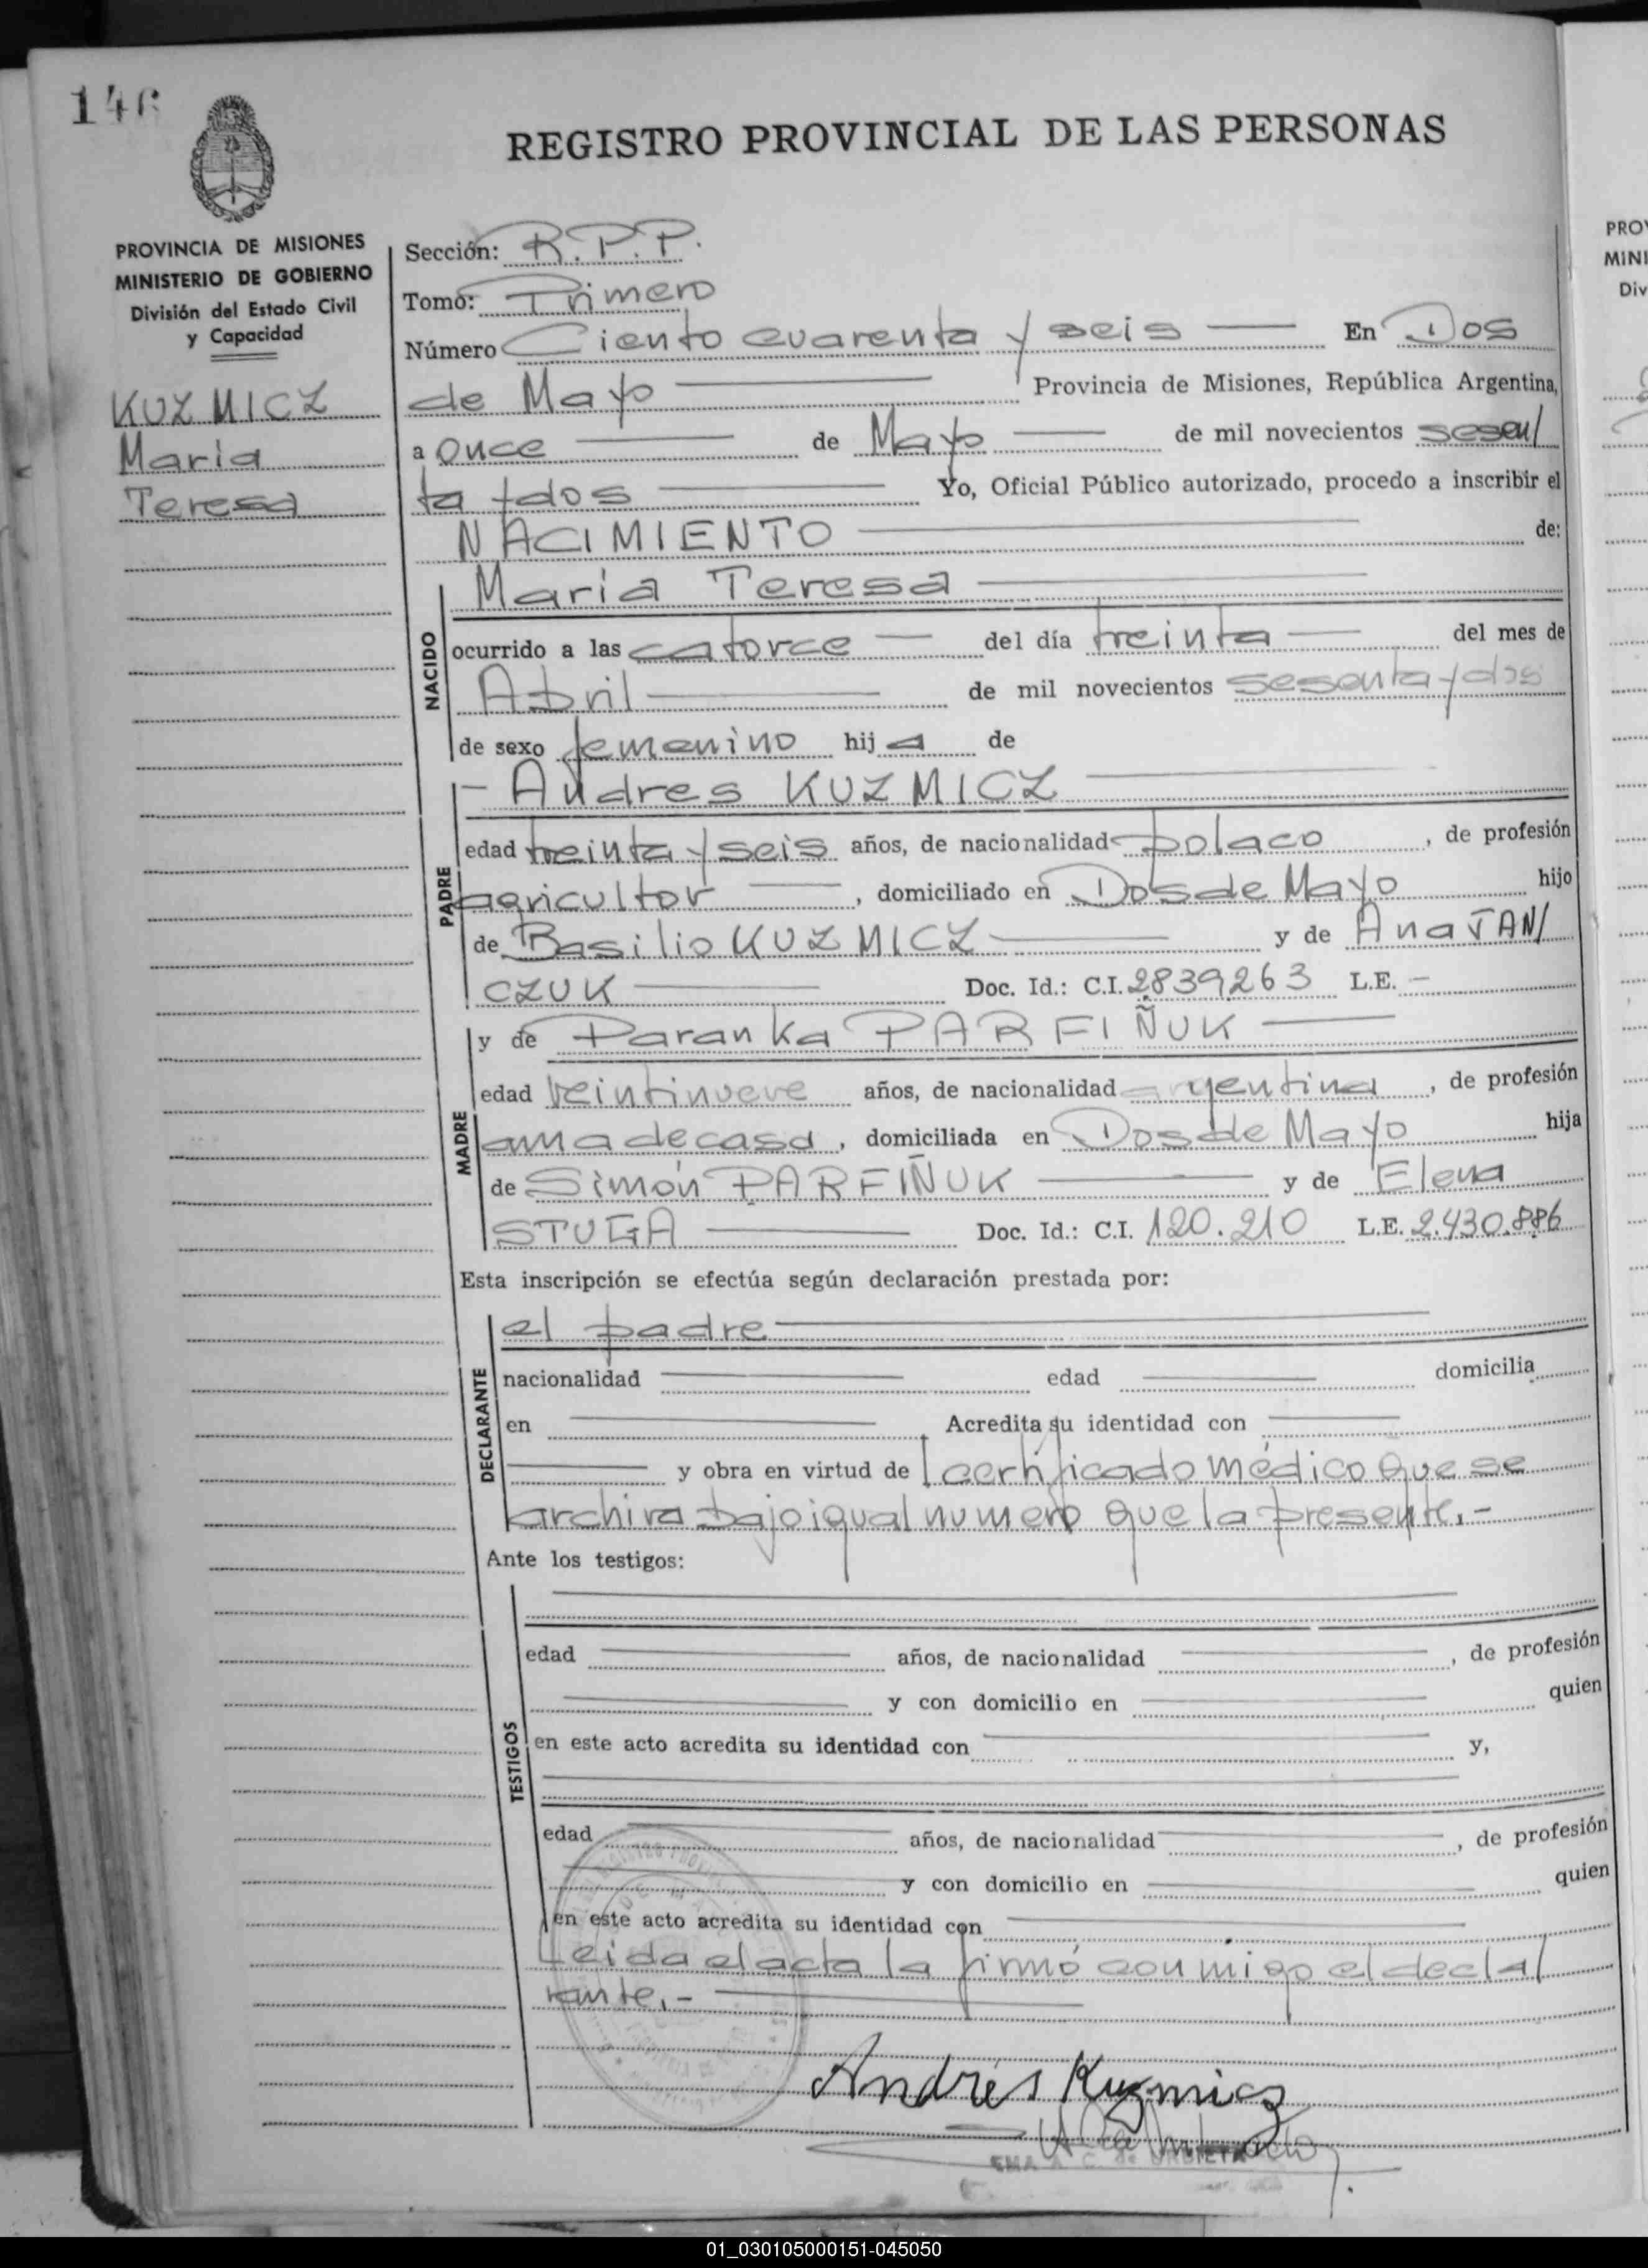 146
REGISTRO PROVINCIAL DE LAS PERSONAS
PROVINCIA DE MISIONES
MINISTERIO DE GOBIERNO
División del Estado Civil
y Capacidad
KUZMICZ
Maria
Teresa
Sección: R.P.P.
Tomo: Primero
Número Ciento cuarenta y seis En Dos
de Mayo Provincia de Misiones, República Argentina,
a once de Mayo de mil novecientos sesen/
ta y dos Yo, Oficial Público autorizado, procedo a inscribir el
NACIMIENTO de:
NACIDO
Maria Teresa
ocurrido a las catorce del día treinta del mes de
Abril de mil novecientos sesenta y dos
de sexo femenino hija de
PADRE
- Andres KUZMICZ
edad treinta y seis años, de nacionalidad polaco, de profesión
agricultor, domiciliado en Dos de Mayo hijo
de Basilio KUZMICZ y de Ana JAN/
CZUK Doc. Id.: C.I. 2839263 L.E. -
MADRE
y de Paranka PARFIÑUK
edad veintinueve años, de nacionalidad argentina, de profesión
ama de casa, domiciliada en Dos de Mayo hija
de Simón PARFIÑUK y de Elena
STUGA Doc. Id.: C.I. 120.210 L.E. 2.430.886
Esta inscripción se efectúa según declaración prestada por:
DECLARANTE
el padre
nacionalidad edad domicilia
en Acredita su identidad con
y obra en virtud de certificado médico que se
archiva bajo igual numero que la presente.-
Ante los testigos:
TESTIGOS
edad años, de nacionalidad , de profesión
y con domicilio en quien
en este acto acredita su identidad con y,
edad años, de nacionalidad , de profesión
y con domicilio en quien
en este acto acredita su identidad con
Leida el acta la firmó conmigo el decla/
rante.-
Andrés Kuzmicz
EMA A. C. de URBIETA
PRO
MINI
Div
01_030105000151-045050